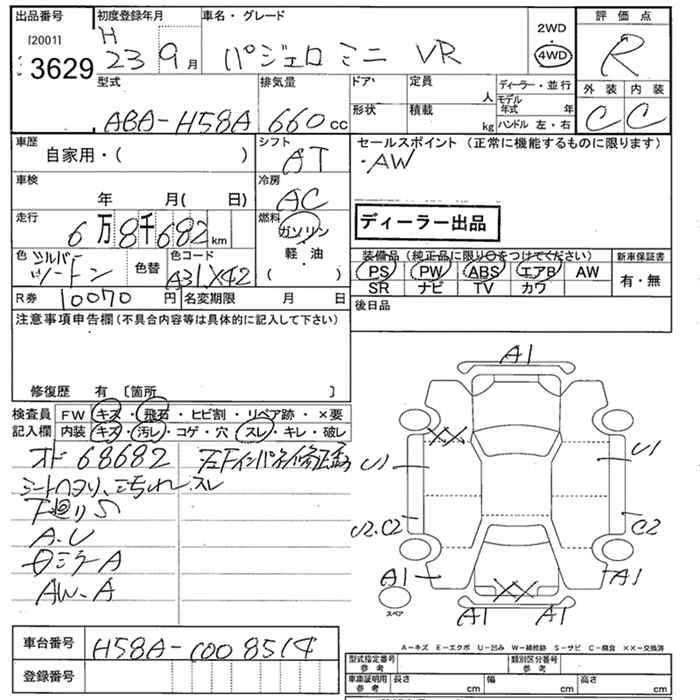 出品番号
[2001]
3629
初度登録年月
H
23 9月
車名・グレード
パジェロミニ VR
2WD
4WD
評価点
R
外装 内装
C C
型式
ABA-H58A
排気量
660cc
ドア
形状
定員
人
積載
kg
ディーラー・並行
モデル年式 年
ハンドル 左・右
車歴
自家用・( )
シフト
AT
セールスポイント (正常に機能するものに限ります)
・AW
車検
年 月( 日)
冷房
AC
走行
6万8千682km
燃料
ガソリン
軽・油
( )
ディーラー出品
色 シルバー
ツートン
色替
色コード
A31X42
装備品(純正品に限り○をつけてください)
PS PW ABS エアB AW
SR ナビ TV カワ
新車保証書
有・無
R券 10070円
名変期限 月 日
後日品
注意事項申告欄(不具合内容等は具体的に記入して下さい)
修復歴 有 〔箇所 〕
検査員
記入欄
FW キズ・飛石・ヒビ割・リペア跡・×要
内装 キズ・汚レ・コゲ・穴・スレ・キレ・破レ
オド 68682
シートヘタリ、
下廻りS
A.U
AW-A
A1
XX
U1
U1
U2.C2
C2
A1
A1
XX
A1
A1
スペア
車台番号
H58A-1008514
登録番号
A－キズ E－エクボ U－凹み W－補修跡 S－サビ C－腐食 ××－交換済
型式指定番号
参考
類別区分番号
参考
車庫証明用
参考
長さ cm
幅 cm
高さ cm